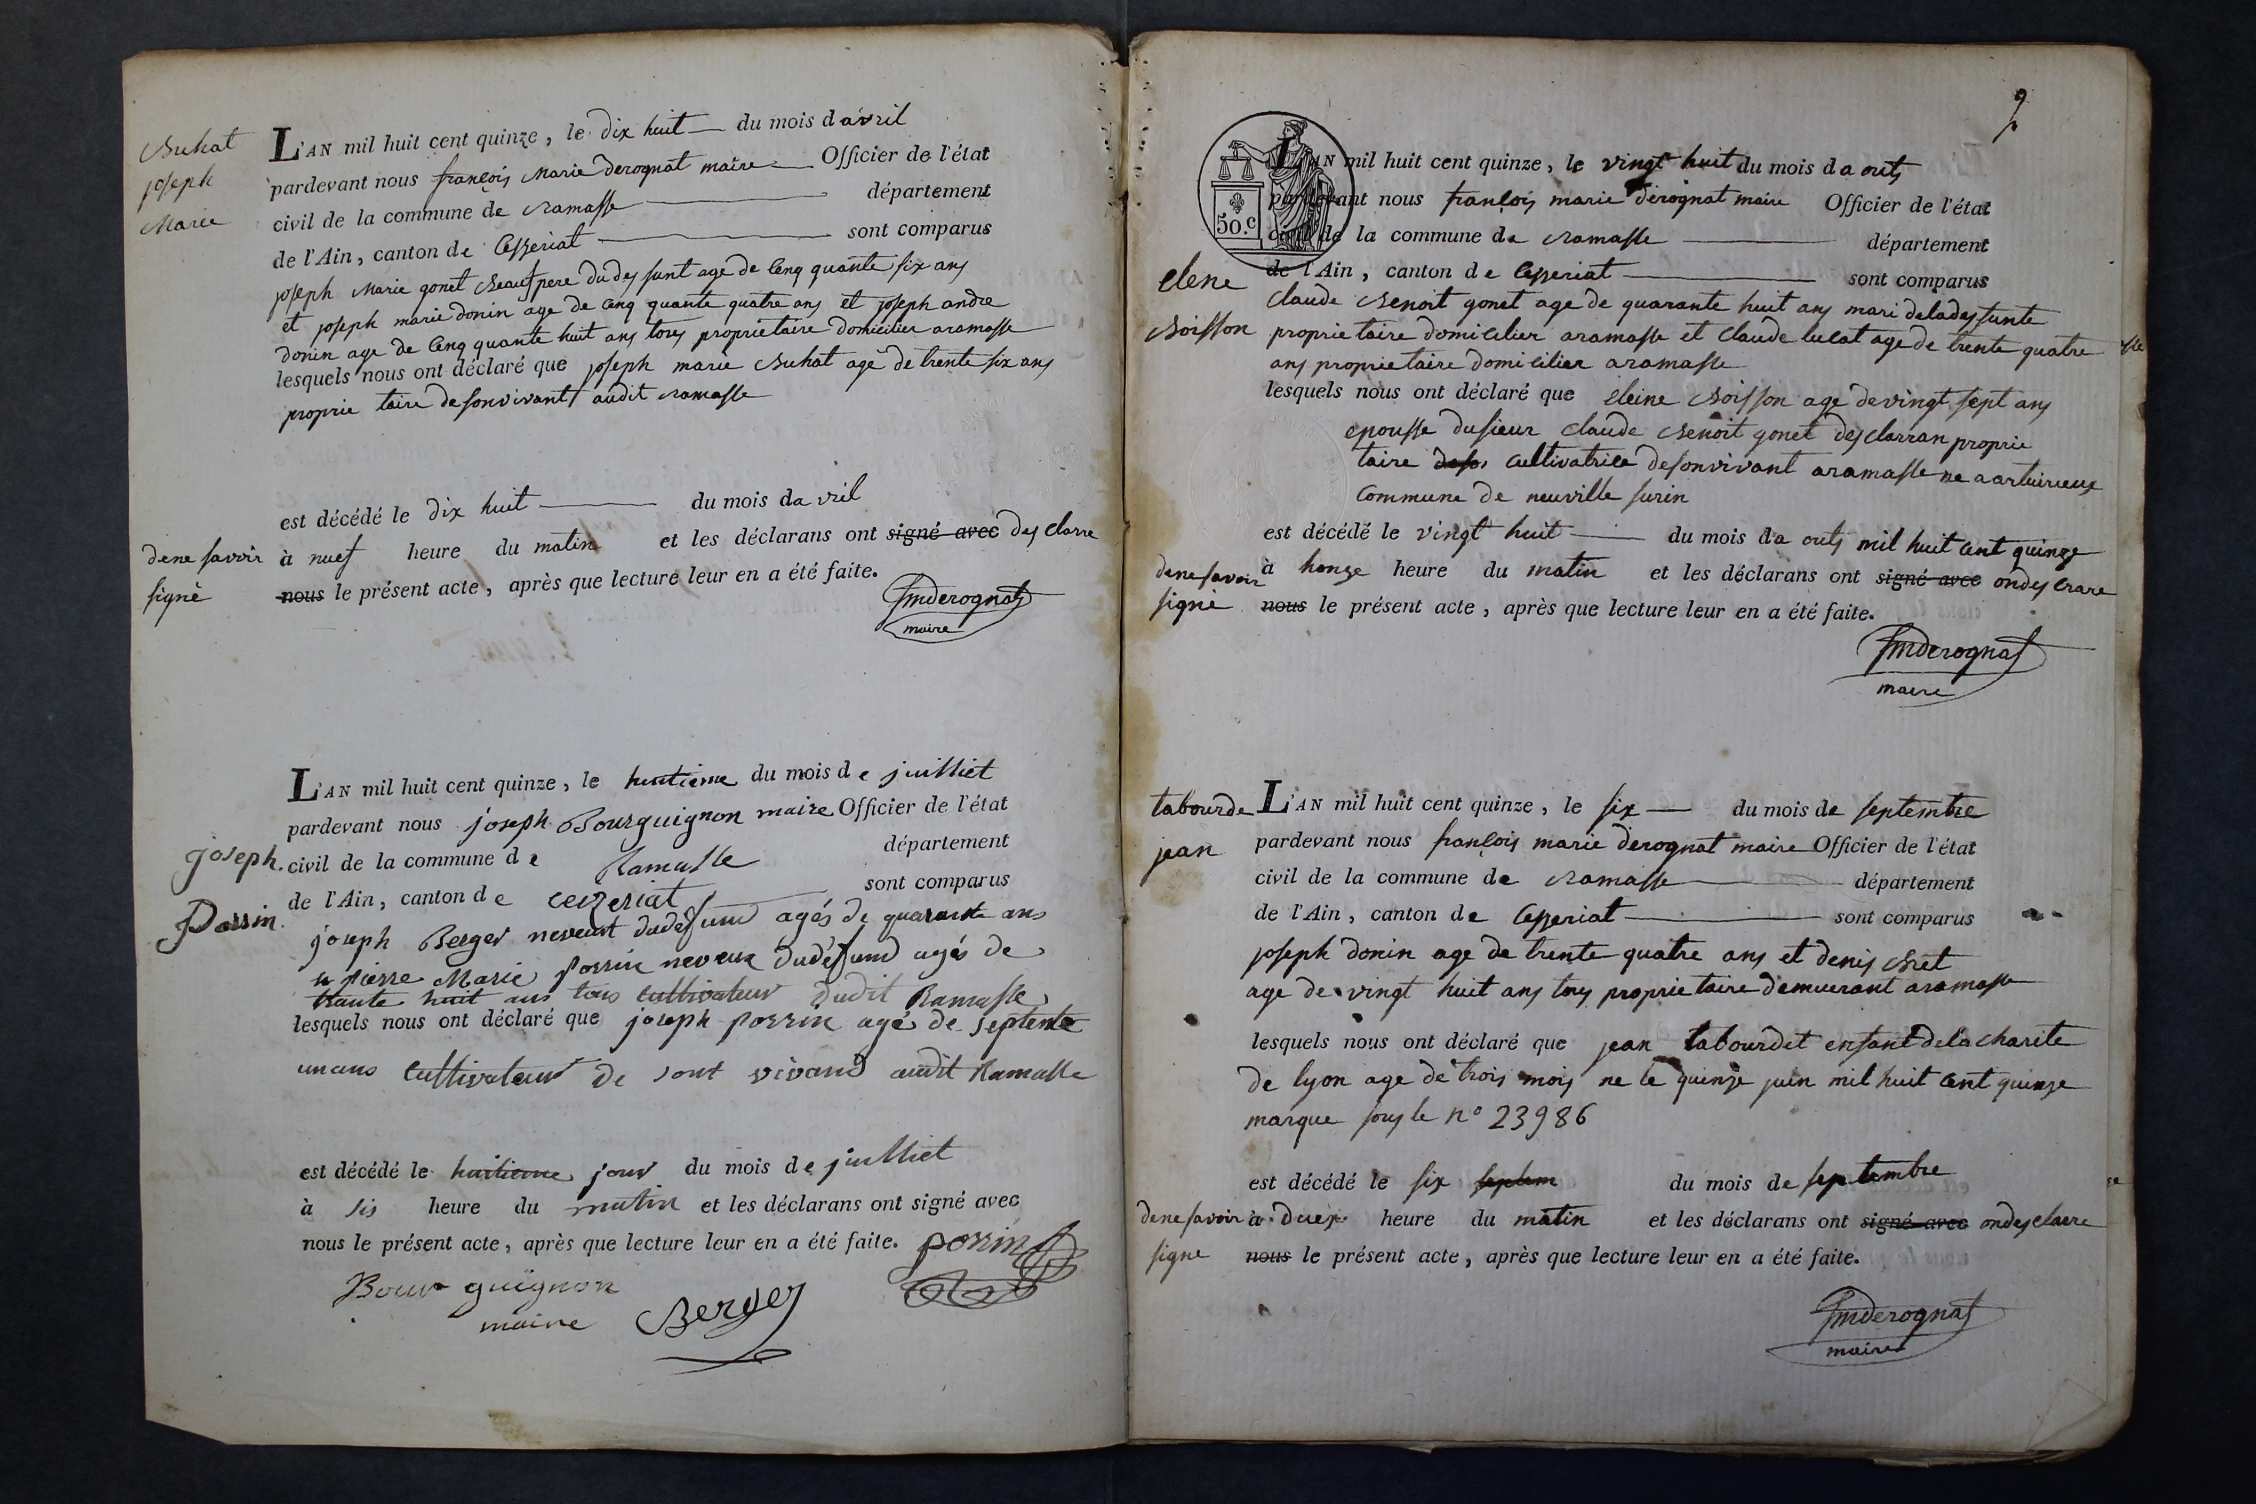 Buhat
joseph
Marie
L'AN mil huit cent quinze, le dix huit du mois d avril
pardevant nous françois Marie derognat maire Officier de l'état
civil de la commune de ramasse département
de l'Ain, canton de Ceyzeriat sont comparus
joseph Marie gonet Beaufpere dudesfunt age de Cenq quante six ans
et joseph marie donin age de Cenq quante quatre ans et joseph andre
donin age de Cenq quante huit ans tous proprietaire domicilier aramasse
lesquels nous ont déclaré que joseph marie Buhat agé de trente six ans
proprie taire desonvivant audit ramasse
est décédé le dix huit du mois da vril
à nuef heure du matin et les déclarans ont signé avec des clarre
dene savoir
signé
nous le présent acte, après que lecture leur en a été faite.
fmderognat
maire
joseph
Porrin
L'AN mil huit cent quinze, le huitieme du mois de juilliet
pardevant nous joseph Bourguignon maire Officier de l'état
civil de la commune de Ramasse département
de l'Ain, canton de ceizeriat sont comparus
joseph Berger neveux dudefund agés de quarante ans
et pierre Marie porrin neveux dudéfund agés de
trante huit ans tous cultivateur dudit Ramasse
lesquels nous ont déclaré que joseph porrin agé de septente
unans cultivateur De sont vivand audit Ramasse
est décédé le huitieme jour du mois de juilliet
à sis heure du matin et les déclarans ont signé avec
nous le présent acte, après que lecture leur en a été faite. porrin
Bour guignon
maire Berger
2
50.c
elene
Boisson
L'AN mil huit cent quinze, le vingt huit du mois da outs
pardevant nous françois marie derognat maire Officier de l'état
civil de la commune de ramasse département
de l'Ain, canton de Ceyzeriat sont comparus
Claude Benoit gonet age de quarante huit ans mari deladesfunte
proprietaire domicilier aramasse et Claude lucat age de trente quatre
ans proprietaire domicilier aramasse
lesquels nous ont déclaré que eleine Boisson age devingt sept ans
epousse dusieur Claude Benoit gonet desclarran proprie
taire cultivatrice desonvivant aramasse ne a
commune de neuville surin
est décédé le vingt huit du mois da outs mil huit cent quinze
à honze heure du matin et les déclarans ont signé avec ondesclare
denesavoir
signé
nous le présent acte, après que lecture leur en a été faite.
fmderognat
maire
tabourde
jean
L'AN mil huit cent quinze, le six du mois de septembre
pardevant nous françois marie derognat maire Officier de l'état
civil de la commune de ramasse département
de l'Ain, canton de Ceyzeriat sont comparus
joseph donin age de trente quatre ans et denis Bret
age de vingt huit ans tous proprietaire demuerant aramasse
lesquels nous ont déclaré que jean tabourdet enfant dela charite
de lyon age de trois mois ne le quinze juin mil huit cent quinze
marque sous le n° 23986
est décédé le six septem du mois de septembre
à duex heure du matin et les déclarans ont signé avec ondesclaere
denesavoir
signe
nous le présent acte, après que lecture leur en a été faite.
fmderognat
maire